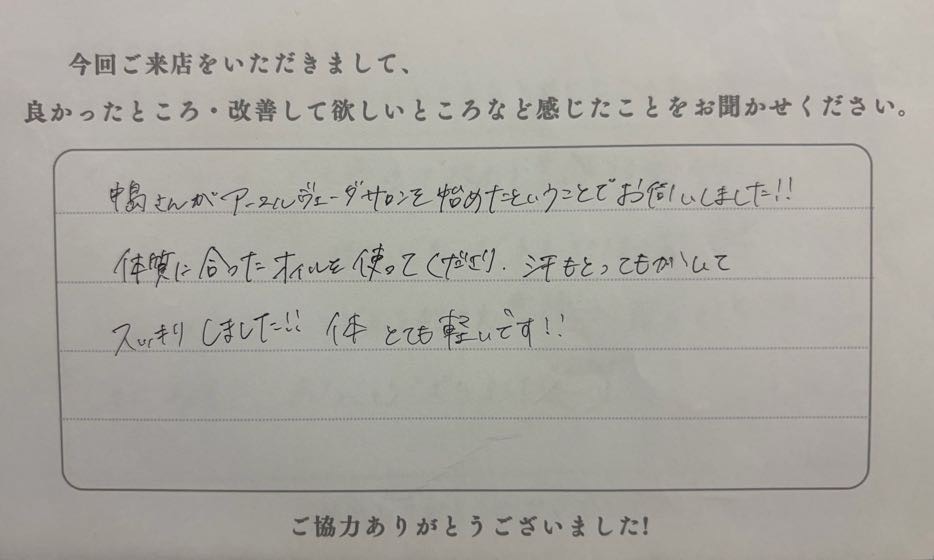 今回ご来店をいただきまして、
良かったところ・改善して欲しいところなど感じたことをお聞かせください。
中島さんがアーユルヴェーダサロンを始めたということでお伺いしました!!
体質に合ったオイルを使ってくださり、汗もとってもかいて
スッキリしました!! 体とても軽いです!!
ご協力ありがとうございました!